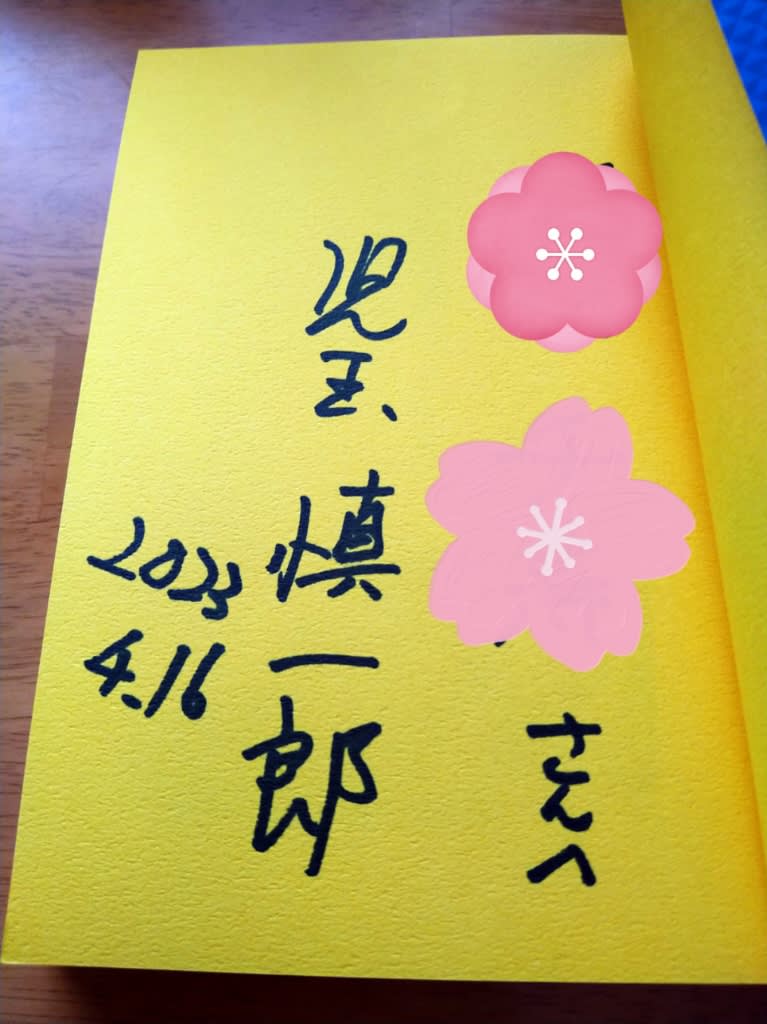 さんへ
児玉慎一郎
2023
4.16